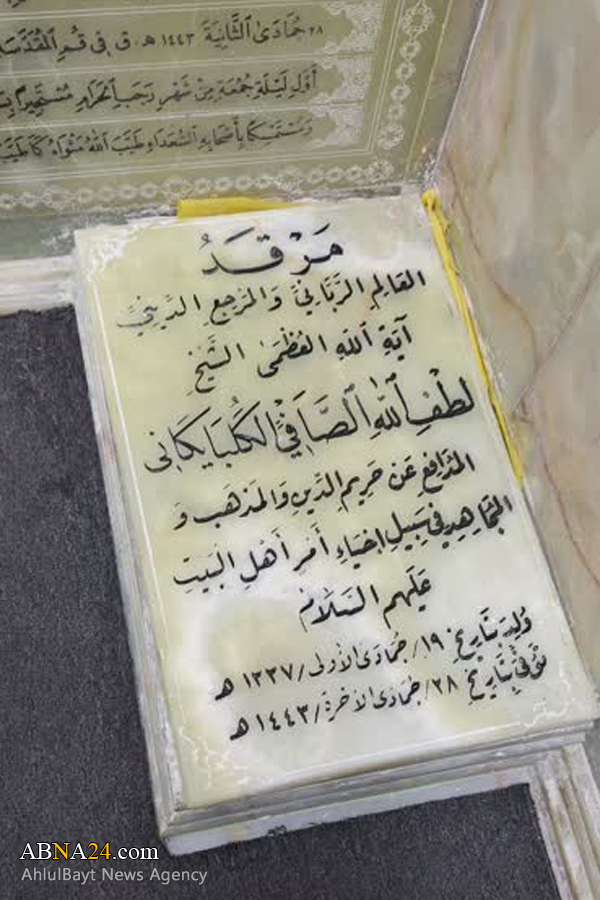 ٢٨ جُمَادَىٰ الثَّانِيَة ١٤٤٣ هـ.ق فِي قُمِ المُقَدَّسَةِ
أَوَّلِ لَيْلَةِ جُمُعَةٍ مِنْ شَهْرِ رَجَبِ الحَرَامِ مُسْتَجِيراً
وَمُسْتَمْسِكاً بِأَصْحَابِهِ السُّعَدَاءِ طَيَّبَ اللهُ مَثْوَاهُ كَمَا طَيَّبَ
مَرْقَدُ
العَالِمِ الرَّبَّانِيِّ وَالمَرْجِعِ الدِّينِيِّ
آيَةِ اللهِ العُظْمَىٰ الشَّيْخِ
لُطْفِ اللهِ الصَّافِي الگُلْپَايگَانِي
المُدَافِعِ عَنْ حَرِيمِ الدِّينِ وَالمَذْهَبِ وَ
المُجَاهِدِ فِي سَبِيلِ إِحْيَاءِ أَمْرِ أَهْلِ البَيْتِ
عَلَيْهِمُ السَّلَامُ
وُلِدَ بِتَارِيخِ ١٩/ جُمَادَىٰ الأُولَىٰ/ ١٣٣٧ هـ
تُوُفِّيَ بِتَارِيخِ ٢٨/ جُمَادَىٰ الآخِرَةِ/ ١٤٤٣ هـ
ABNA24.com
AhlulBayt News Agency